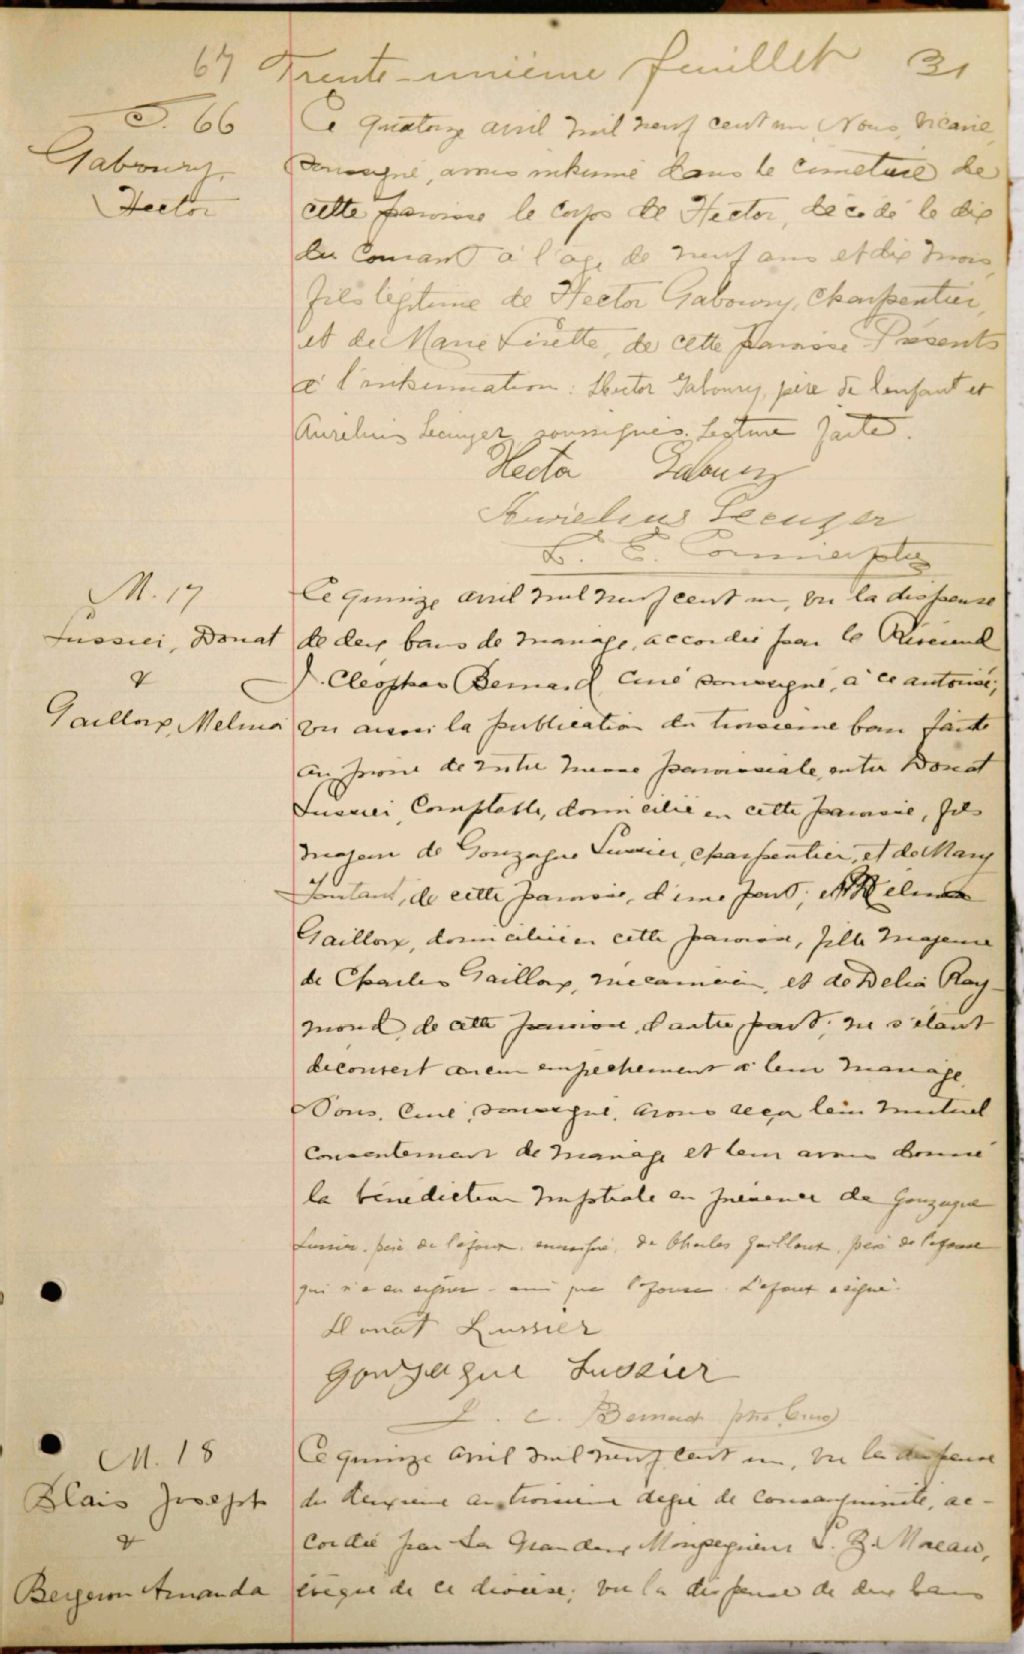 67 Trente-unième feuillet 31
S. 66
Gaboury,
Hector
Ce quatorze avril mil neuf cent un, Nous, vicaire
soussigné, avons inhumé dans le cimetière de
cette paroisse le corps de Hector, décédé le dix
du courant à l'age de neuf ans et dix mois,
fils légitime de Hector Gaboury, charpentier,
et de Marie Lisette, de cette paroisse. Présents
à l'inhumation: Hector Gaboury, père de l'enfant et
Aurélius Lecuyer soussignés. Lecture faite.
Hector Gaboury
Aurielius Lecuyer
L. E. Cormier ptre
M. 17
Lussier, Donat
&
Gailloux, Melina
Ce quinze avril mil neuf cent un, vu la dispense
de deux bans de mariage, accordée par le Révérend
J. Cléophas Bernard, curé soussigné, à ce autorisé;
vu aussi la publication du troisième ban faite
au prône de notre messe paroissiale, entre Donat
Lussier, Comptable, domicilié en cette paroisse, fils
majeur de Gonzague Lussier, charpentier, et de Mary
de cette paroisse, d'une part; et Mélina
Gailloux, domiciliée en cette paroisse, fille majeure
de Charles Gailloux, mécanicien, et de Delia Ray-
mond, de cette paroisse, d'autre part; ne s'étant
découvert aucun empêchement à leur mariage,
Nous, Curé, soussigné, avons reçu leur mutuel
consentement de mariage et leur avons donné
la bénédiction nuptiale en présence de Gonzague
Lussier, père de l'époux, soussigné, de Charles Gailloux, père de l'épouse
qui n'a su signer ainsi que l'épouse. L'époux a signé.
Donat Lussier
Gonzague Lussier
J. C. Bernard ptre Curé
M. 18
Blais Joseph
&
Bergeron Amanda
Ce quinze avril mil neuf cent un, vu la dispense
du deuxième au troisième degré de consanguinité, ac-
cordée par Sa Grandeur Monseigneur L. Z. Moreau,
évêque de ce diocèse; vu la dispense de deux bans